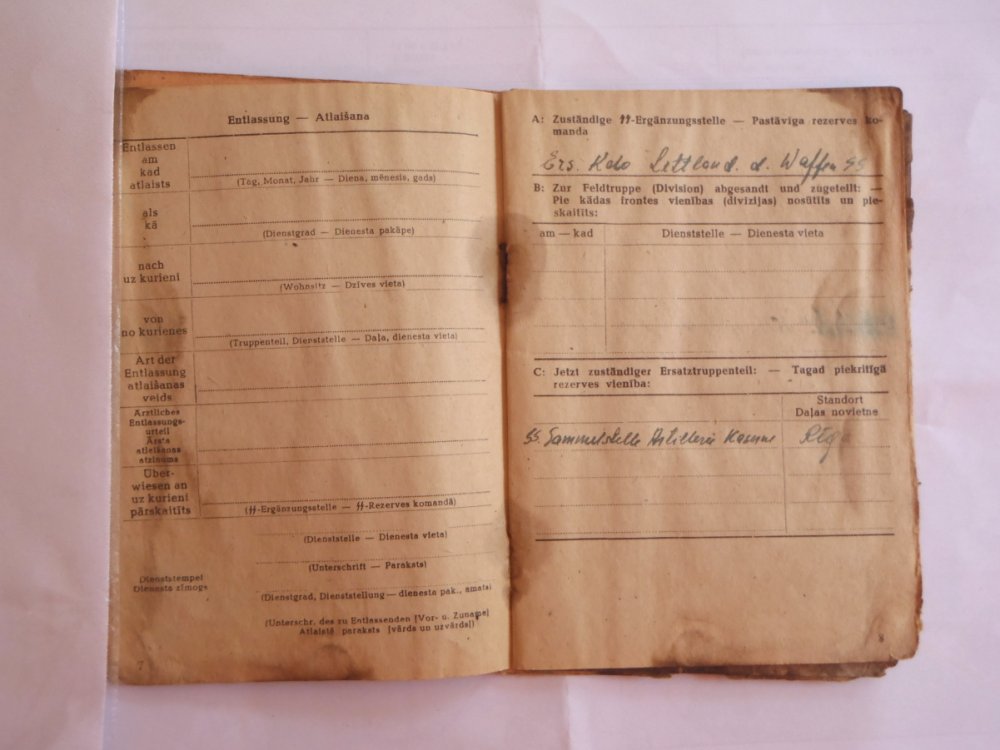 Entlassung — Atlaišana
Entlassen
am
kad
atlaists
(Tag, Monat, Jahr — Diena, mēnesis, gads)
als
kā
(Dienstgrad — Dienesta pakāpe)
nach
uz kurieni
(Wohnsitz — Dzīves vieta)
von
no kurienes
(Truppenteil, Dienststelle — Daļa, dienesta vieta)
Art der
Entlassung
atlaišanas
veids
Ärztliches
Entlassungs-
urteil
Ārsta
atleišanas
atzinums
Über-
wiesen an
uz kurieni
pārskaitīts
(ᛋᛋ-Ergänzungsstelle — ᛋᛋ-Rezerves komandā)
(Dienststelle — Dienesta vieta)
(Unterschrift — Paraksts)
Dienststempel
Dienesta zīmogs
(Dienstgrad, Dienststellung — dienesta pak., amats)
(Unterschr. des zu Entlassenden [Vor- u. Zuname]
Atlaistā paraksts [vārds un uzvārds])
7
A: Zuständige ᛋᛋ-Ergänzungsstelle — Pastāvīga rezerves ko-
manda
Ers. Kdo Lettland. d. Waffen SS
B: Zur Feldtruppe (Division) abgesandt und zugeteilt: —
Pie kādas frontes vienības (divīzijas) nosūtīts un pie-
skaitīts:
am — kad Dienststelle — Dienesta vieta
C: Jetzt zuständiger Ersatztruppenteil: — Tagad piekritīgā
rezerves vienība:
Standort
Daļas novietne
SS. Sammelstelle Artillerie Kaserne Riga
8